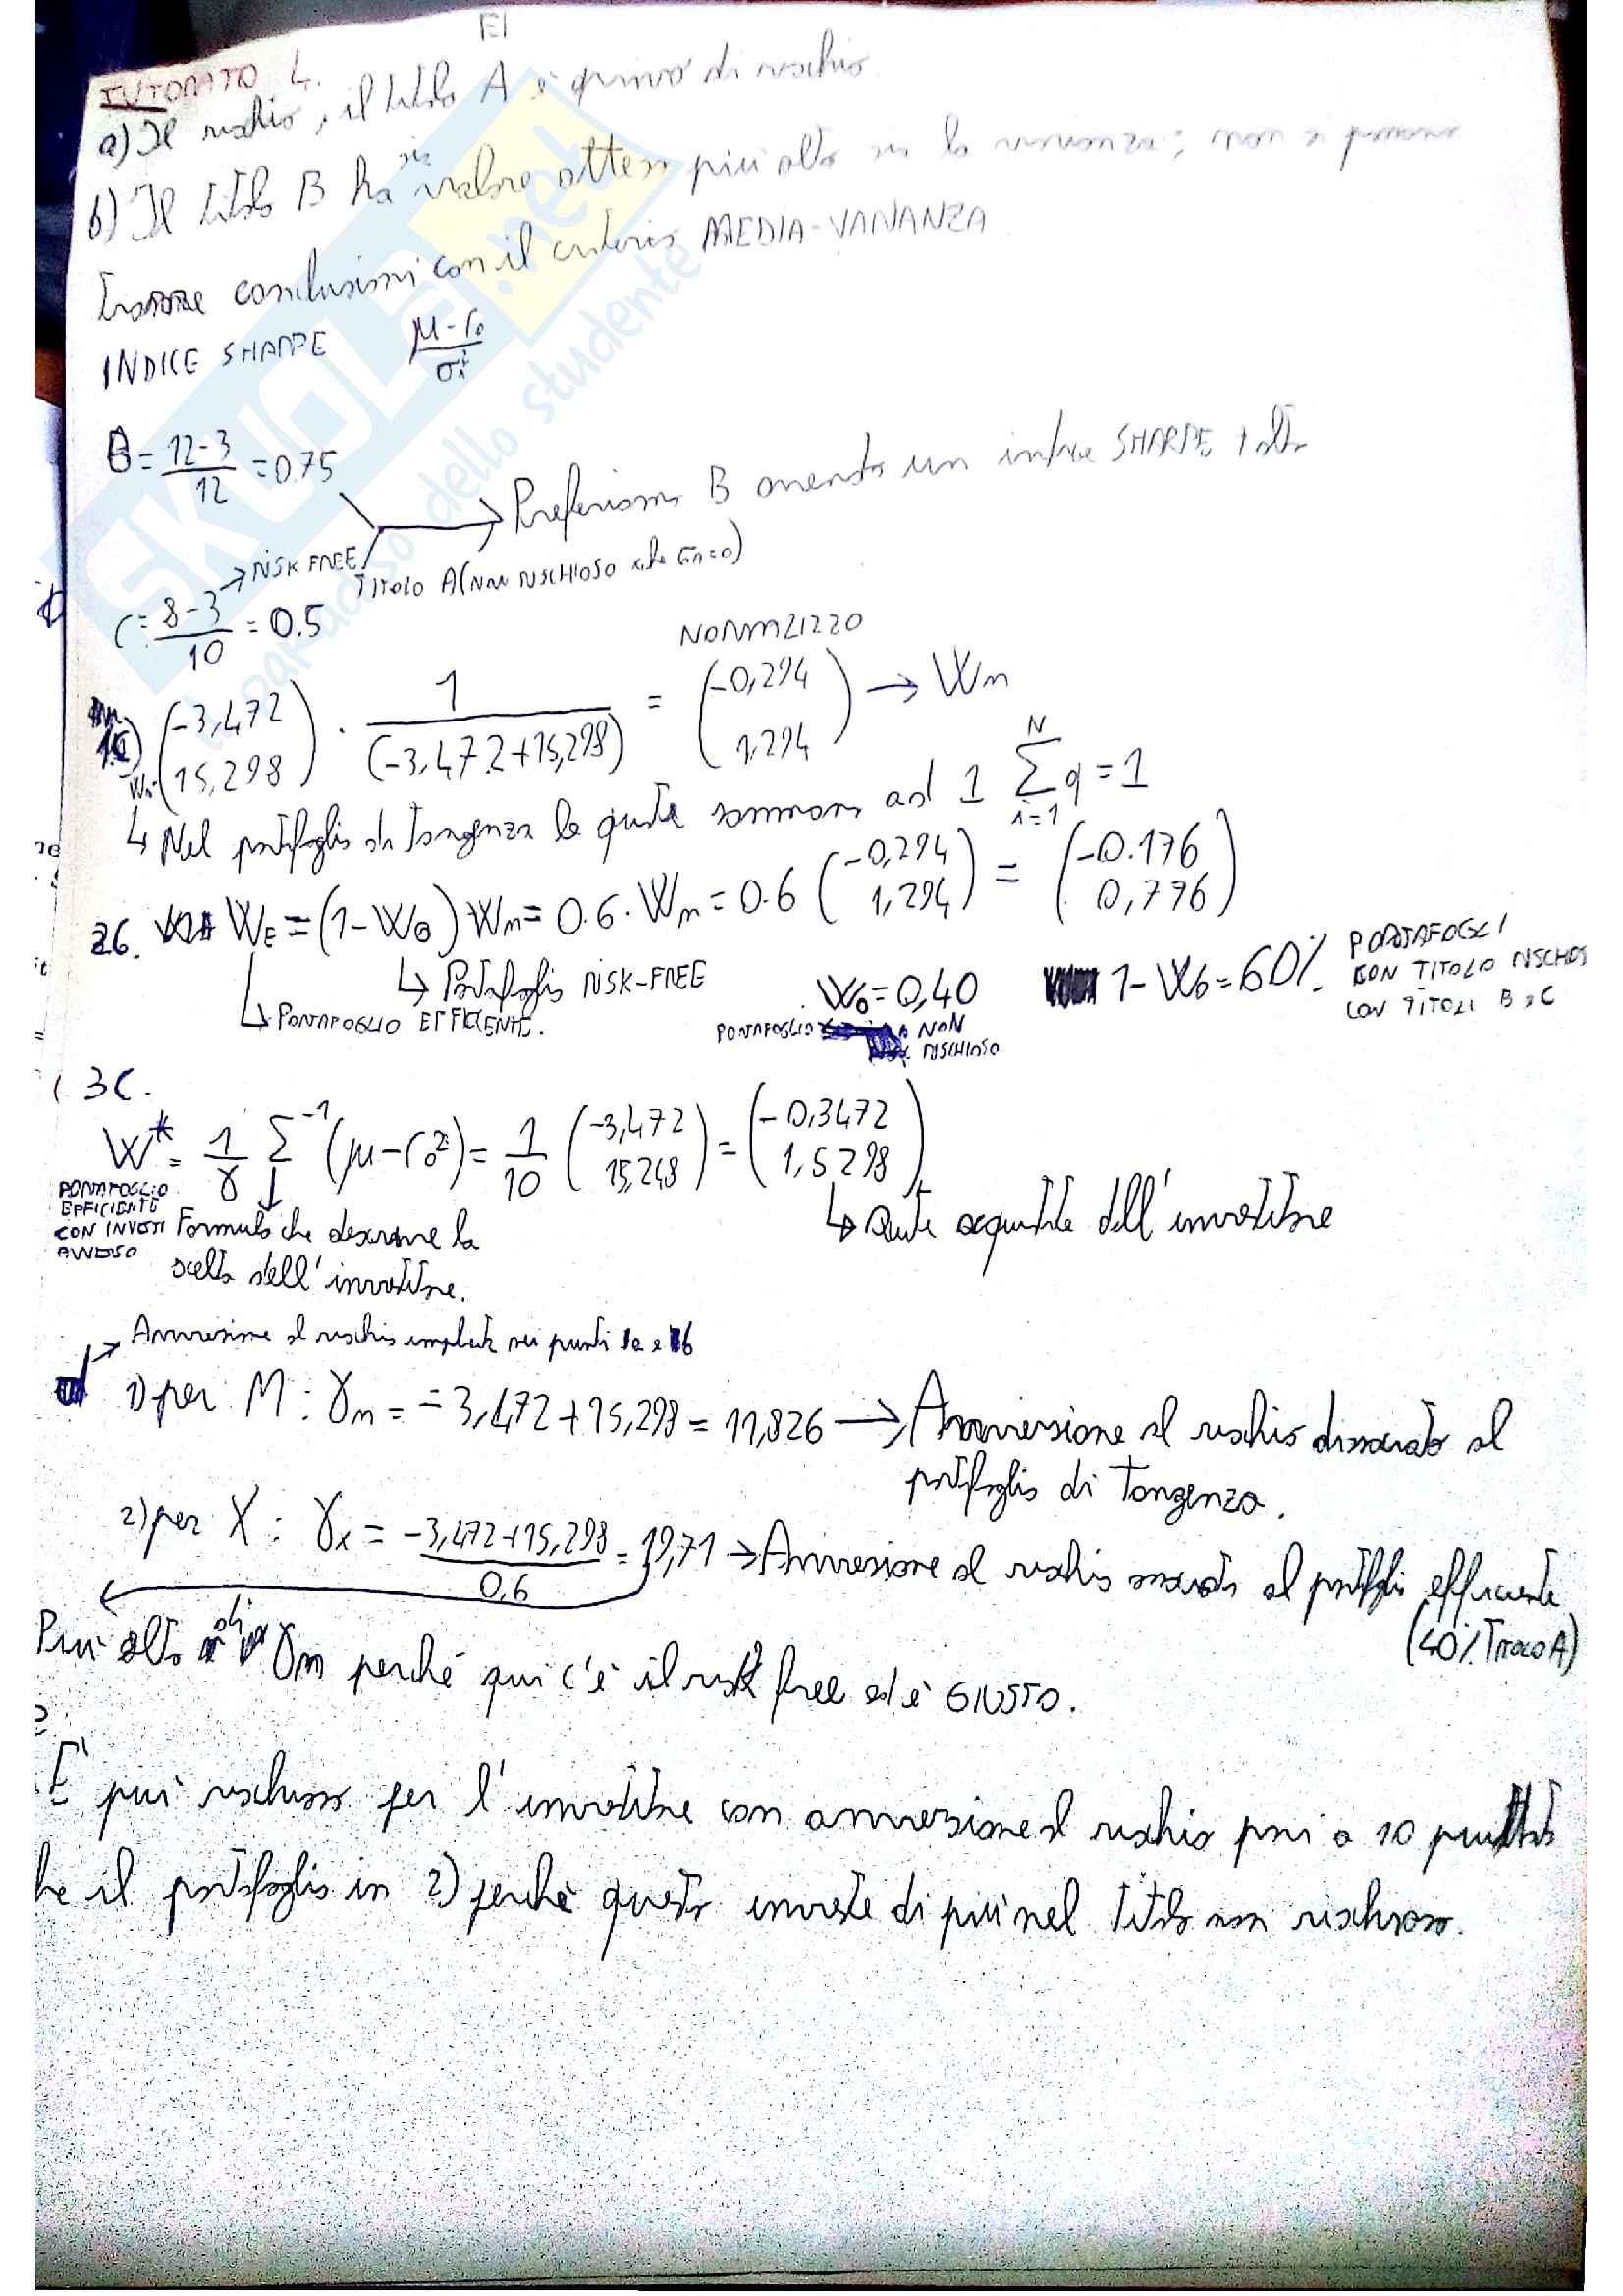 E1
TUTORATO 4.
a) Il rischio, il titolo A è privo di rischio
b) Il titolo B ha sia valore atteso più alto sia la varianza; non si possono
trarre conclusioni con il criterio MEDIA-VARIANZA
INDICE SHARPE μ-r₀ / σᵢ²
B = 12-3 / 12 = 0.75
→ Preferiamo B avendo un indice SHARPE + alto
→ RISK FREE
TITOLO A (NON RISCHIOSO xché σA=0)
C = 8-3 / 10 = 0.5
NORMALIZZO
(-3,472 15,298) · 1 / (-3,472+15,298) = (-0,294 1,294) → Wm
↳ Nel portafoglio di tangenza le quote sommano ad 1 Σ q = 1
N
i=1
26. WE = (1-W0) Wm = 0.6 · Wm = 0.6 (-0,294 1,294) = (-0.176 0,776)
↳ Portafoglio RISK-FREE
↳ PORTAFOGLIO EFFICIENTE.
W0 = 0,40
PORTAFOGLIO NON RISCHIOSO
1-W0 = 60%.
PORTAFOGLI
CON TITOLO RISCHIOSO
CON TITOLI B e C
3C.
W* = 1/γ Σ⁻¹ (μ-r₀) = 1/10 (-3,472 15,248) = (-0,3472 1,5298)
PORTAFOGLIO
EFFICIENTE
CON INVESTI
AVVERSO
Formula che descrive la
scelta dell'investitore.
↳ Quote acquistate dall'investitore
→ Avversione al rischio implicite nei punti 1a e 1b
1) per M: γm = -3,472+15,298 = 11,826 → Avversione al rischio associato al
portafoglio di Tangenza.
2) per X: γx = -3,472+15,298 / 0,6 = 19,71 → Avversione al rischio associato al portafoglio efficiente
(40% TITOLO A)
Più alto di γm perché qui c'è il risk free ed è GIUSTO.
e
È più rischioso per l'investitore con avversione al rischio pari a 10 piuttosto
che il portafoglio in 2) perché questo investe di più nel titolo non rischioso.
SKUOLA.net
il paradiso dello studente